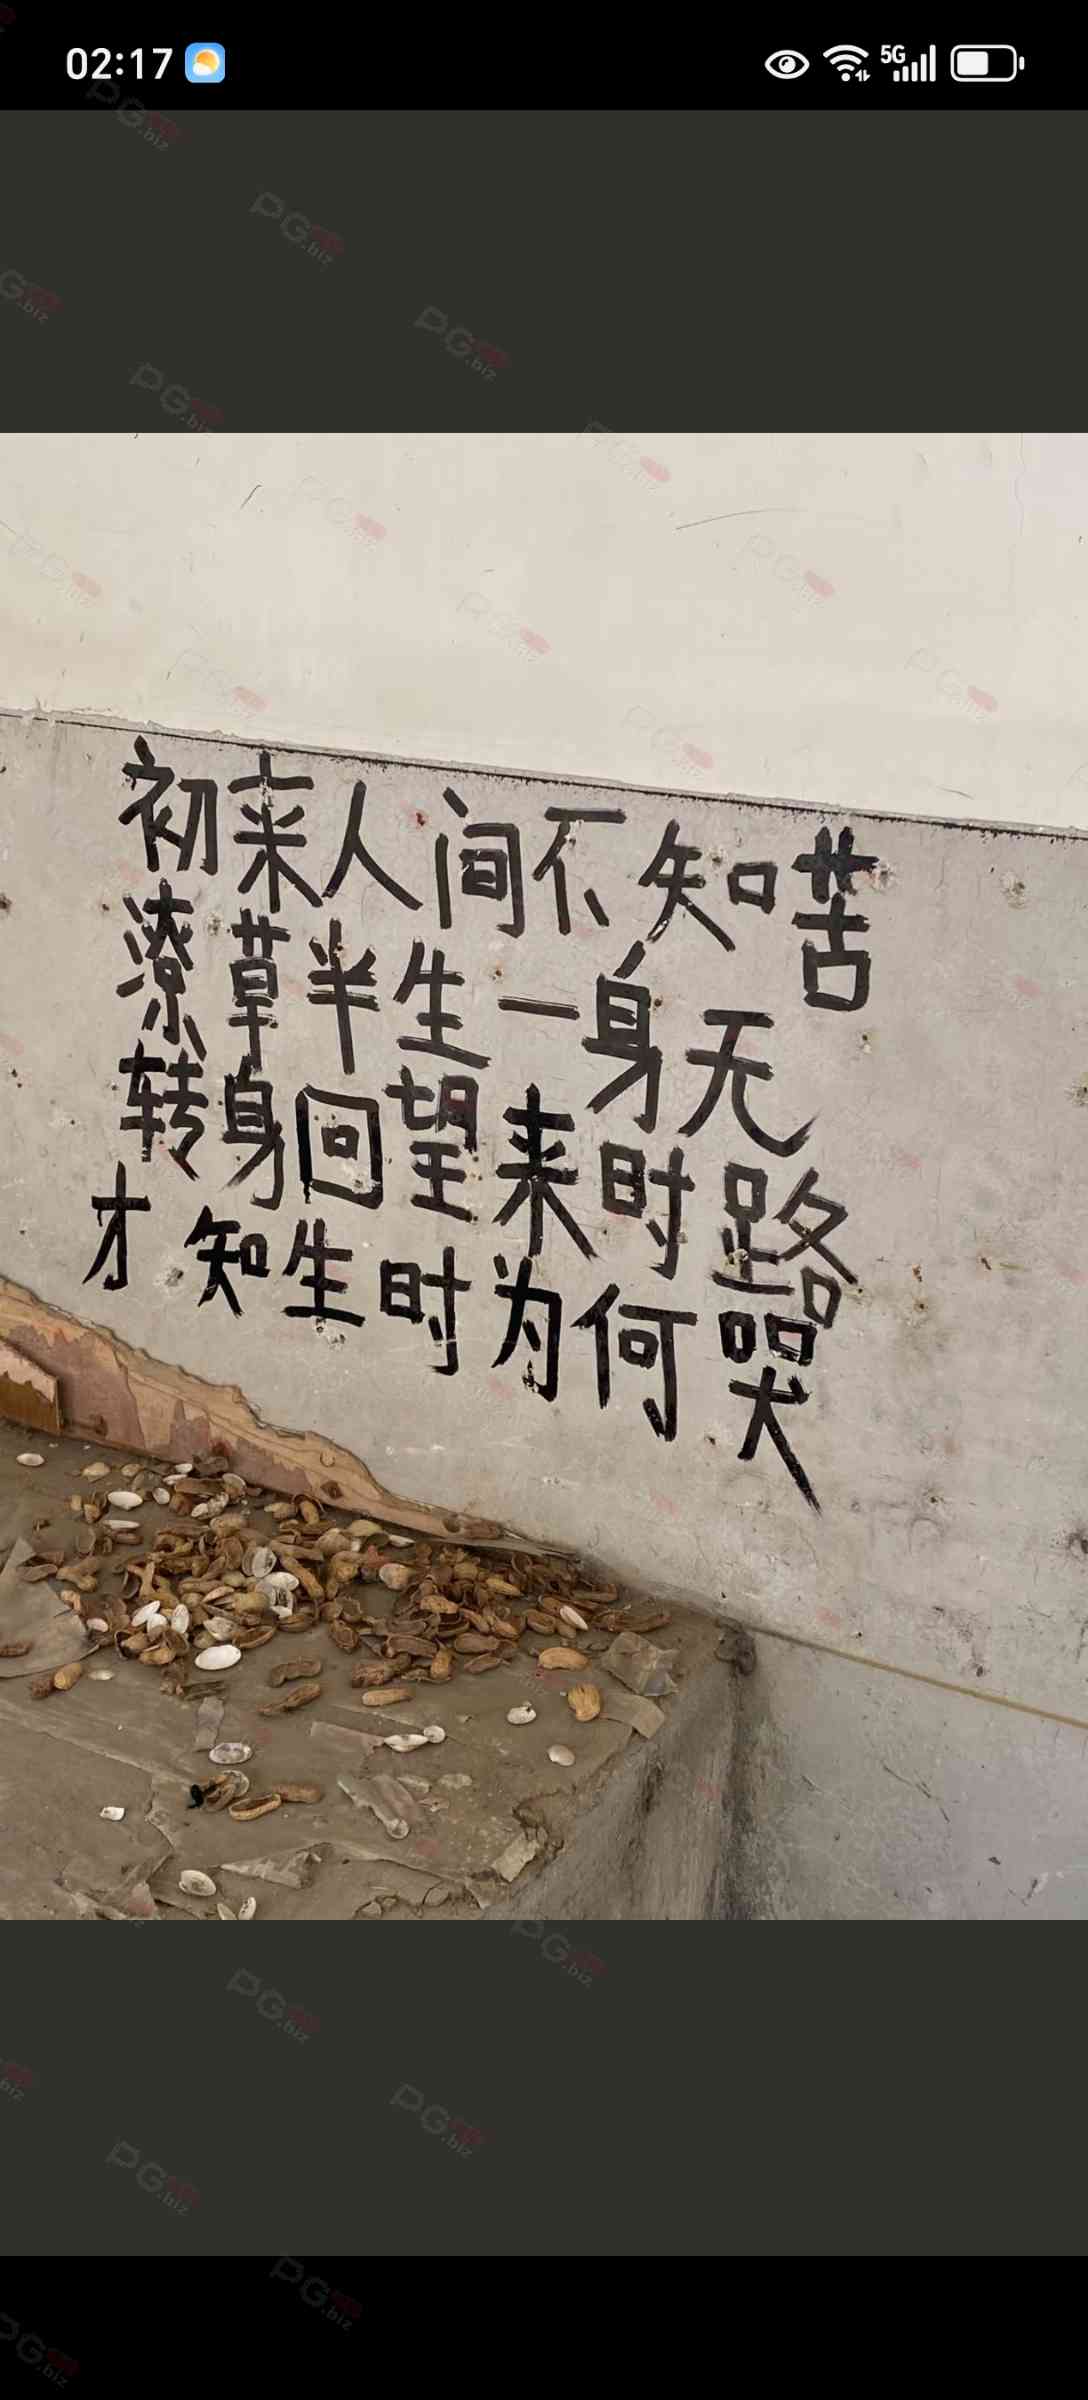 02:17
5G
初来人间不知苦
潦草半生一身无
转身回望来时路
才知生时为何哭
PG.biz